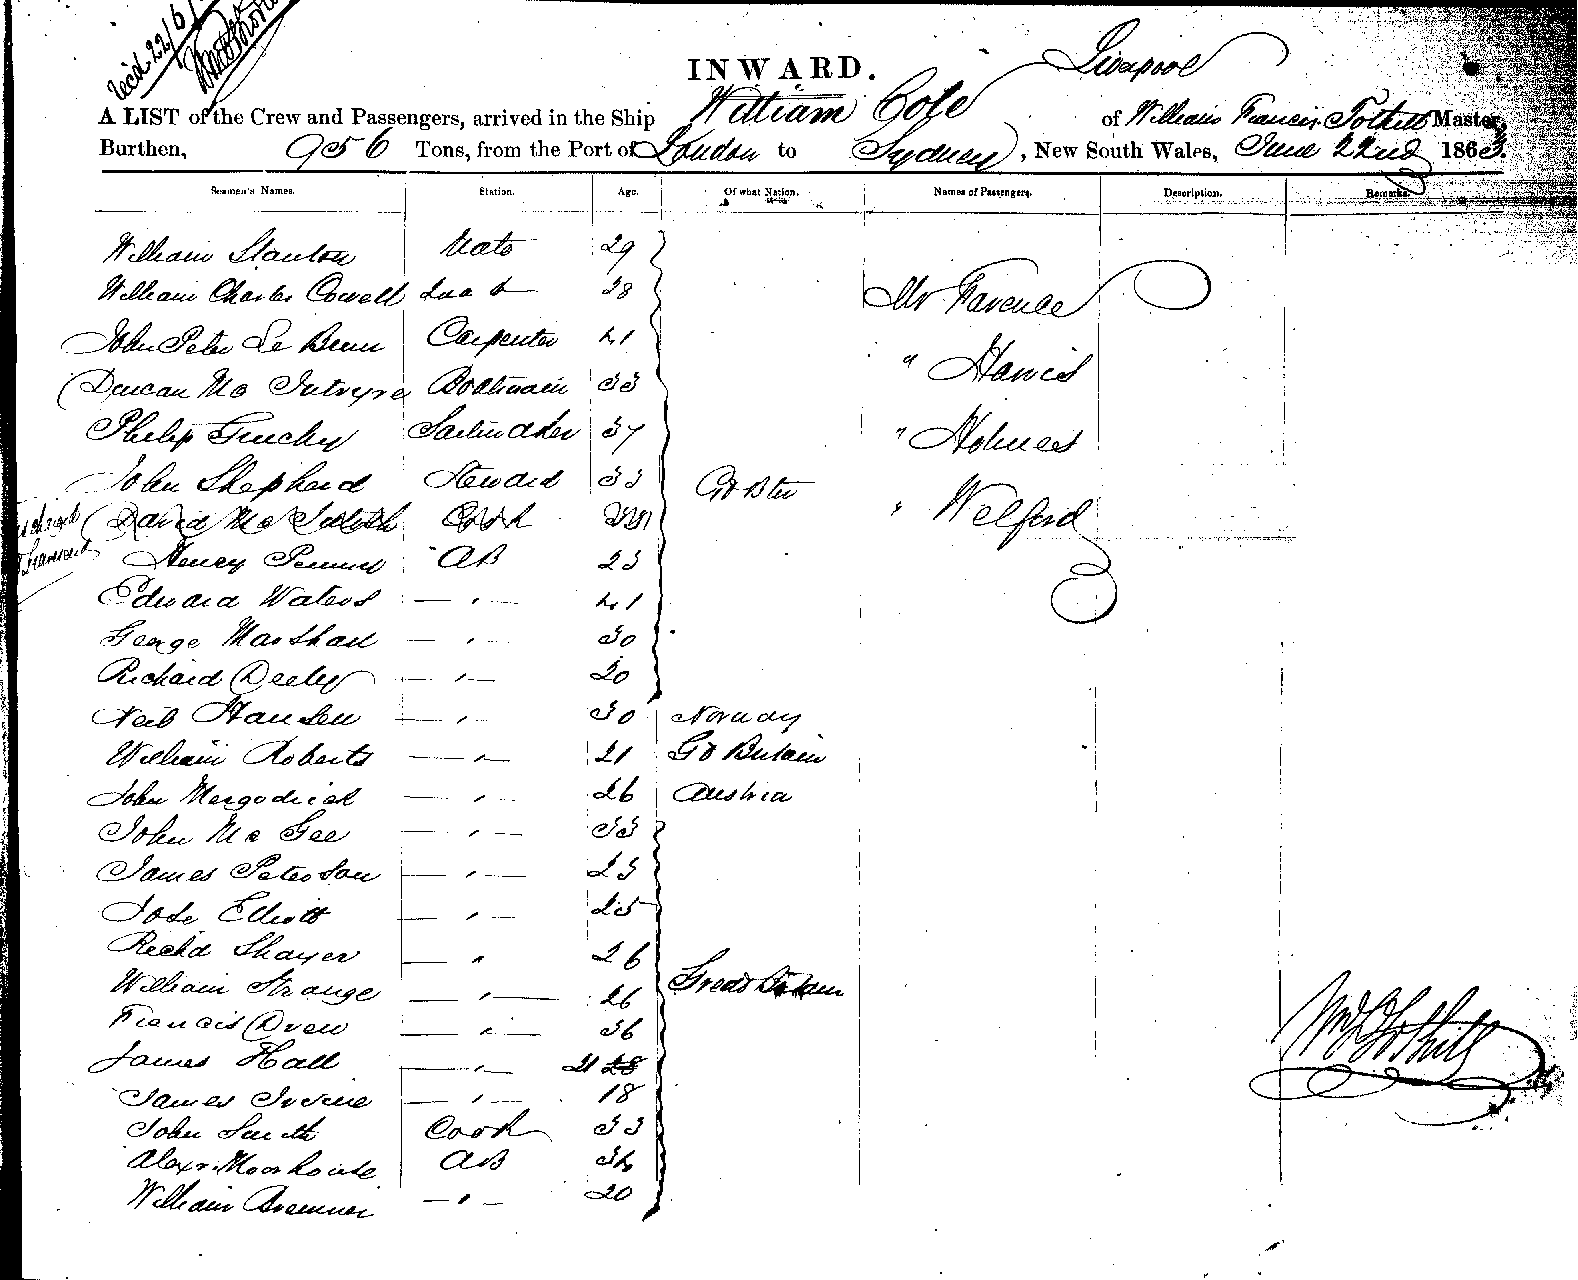 Rec'd 22/6/
INWARD.
Liverpool
A LIST of the Crew and Passengers, arrived in the Ship William Cole of William Francis Tothill Master,
Burthen, 956 Tons, from the Port of London to Sydney, New South Wales, June 22nd 1863.
Seamen's Names. Station. Age. Of what Nation. Names of Passengers. Description. Remarks.
William Stanton Mate 29
William Charles Cowell 2nd do 28 Mr Favence
John Peter Le Brun Carpenter 41
Duncan Mc Intyre Boatswain 33 " Harris
Philip Gruchy Sailmaker 37 " Holmes
John Shepherd Steward 33 Gt Btn
David Mc Cook " Welford
Henry Penny AB 23
Edward Waters — " — 41
George Marshall — " — 30
Richard Deeley — " — 20
Neil Hansen — " — 30 Norway
William Roberts — " — 21 Gt Britain
John Mergodich — " — 26 Austria
John Mc Gee — " — 33
James Peterson — " — 23
Jose Elliott — " — 25
Richd Shayer — " 26
William Strange — " — 26 Great Britain
Francis Owen — " — 36
James Hall — " — 21 28
James Irvine — " — 18
John Smith Cook 33
Alexr. Moorhouse AB 34
William Bremner — " — 20
Wm F Tothill